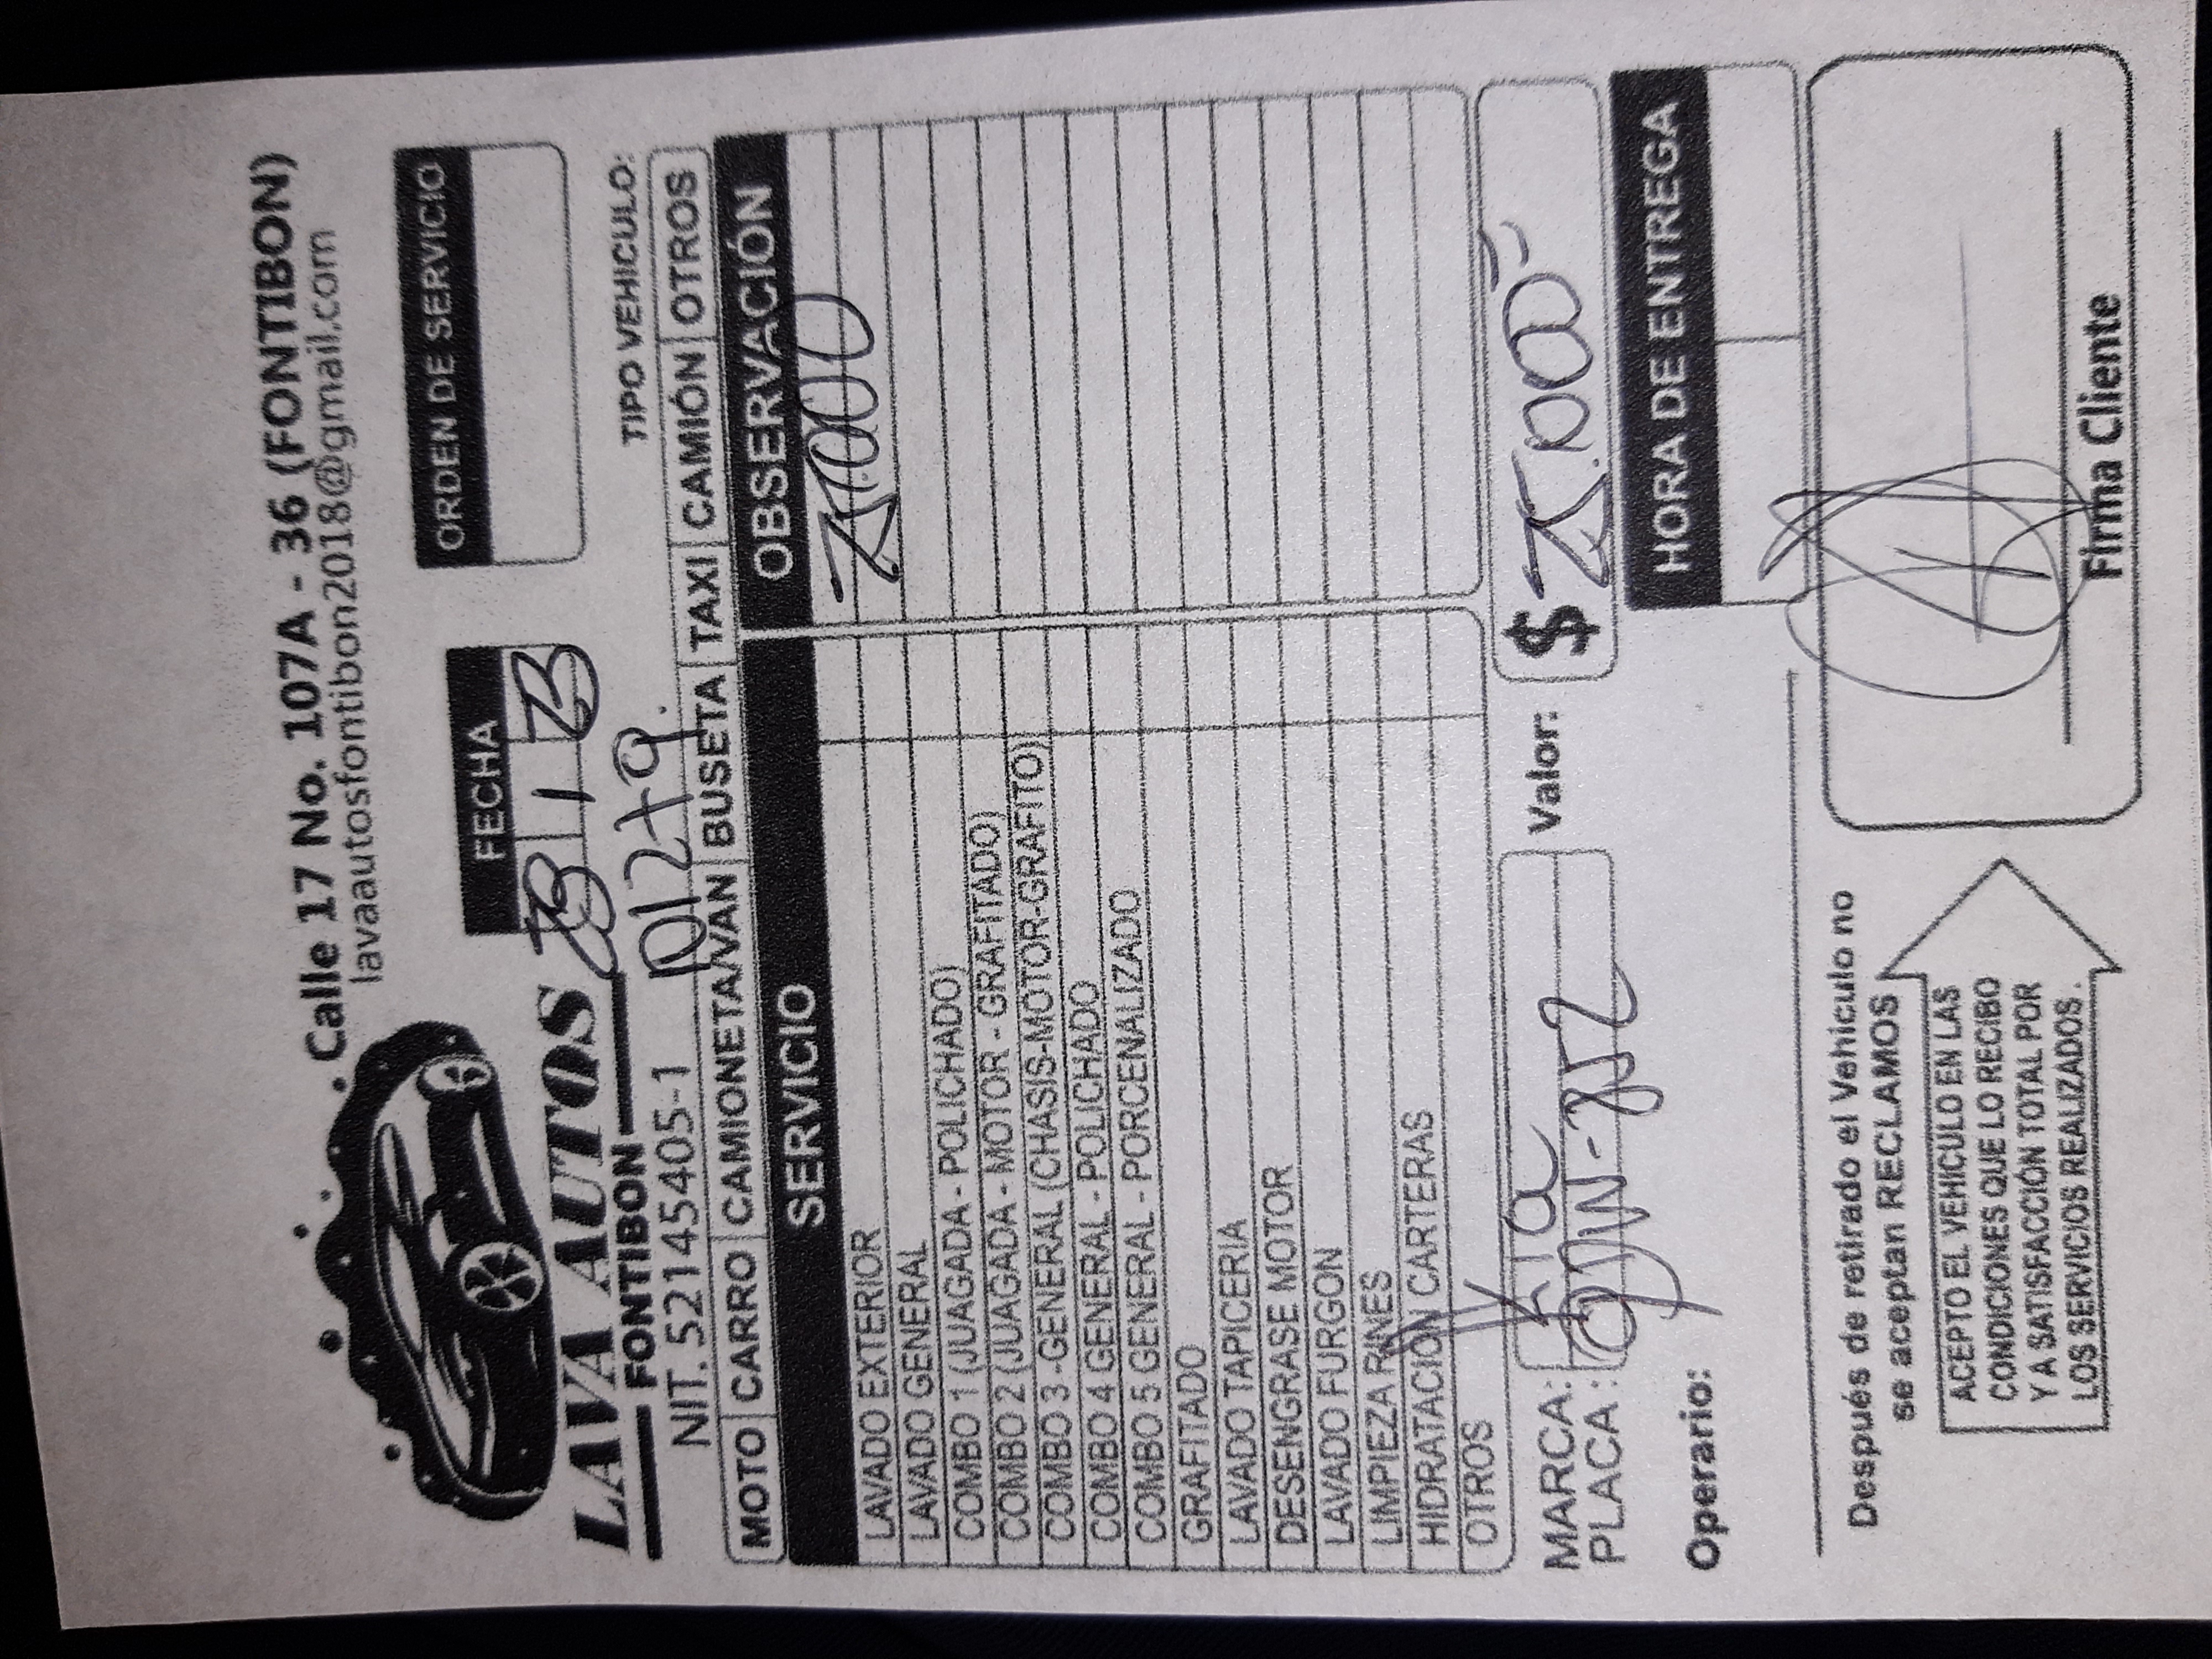 Calle 17 No. 107A - 36 (FONTIBON)
lavaautosfontibon2018@gmail.com
LAVA AUTOS
FONTIBON
NIT. 52145405-1
FECHA
ORDEN DE SERVICIO
TIPO VEHICULO:
MOTO CARRO CAMIONETA/VAN BUSETA TAXI CAMIÓN OTROS
SERVICIO OBSERVACIÓN
LAVADO EXTERIOR
LAVADO GENERAL
COMBO 1 (JUAGADA - POLICHADO)
COMBO 2 (JUAGADA - MOTOR - GRAFITADO)
COMBO 3 -GENERAL (CHASIS-MOTOR-GRAFITO)
COMBO 4 GENERAL - POLICHADO
COMBO 5 GENERAL - PORCENALIZADO
GRAFITADO
LAVADO TAPICERIA
DESENGRASE MOTOR
LAVADO FURGON
LIMPIEZA RINES
HIDRATACION CARTERAS
OTROS
MARCA: Kia
PLACA:
Valor: $
Operario:
HORA DE ENTREGA
Después de retirado el Vehiculo no
se aceptan RECLAMOS
ACEPTO EL VEHICULO EN LAS
CONDICIONES QUE LO RECIBO
Y A SATISFACCIÓN TOTAL POR
LOS SERVICIOS REALIZADOS.
Firma Cliente